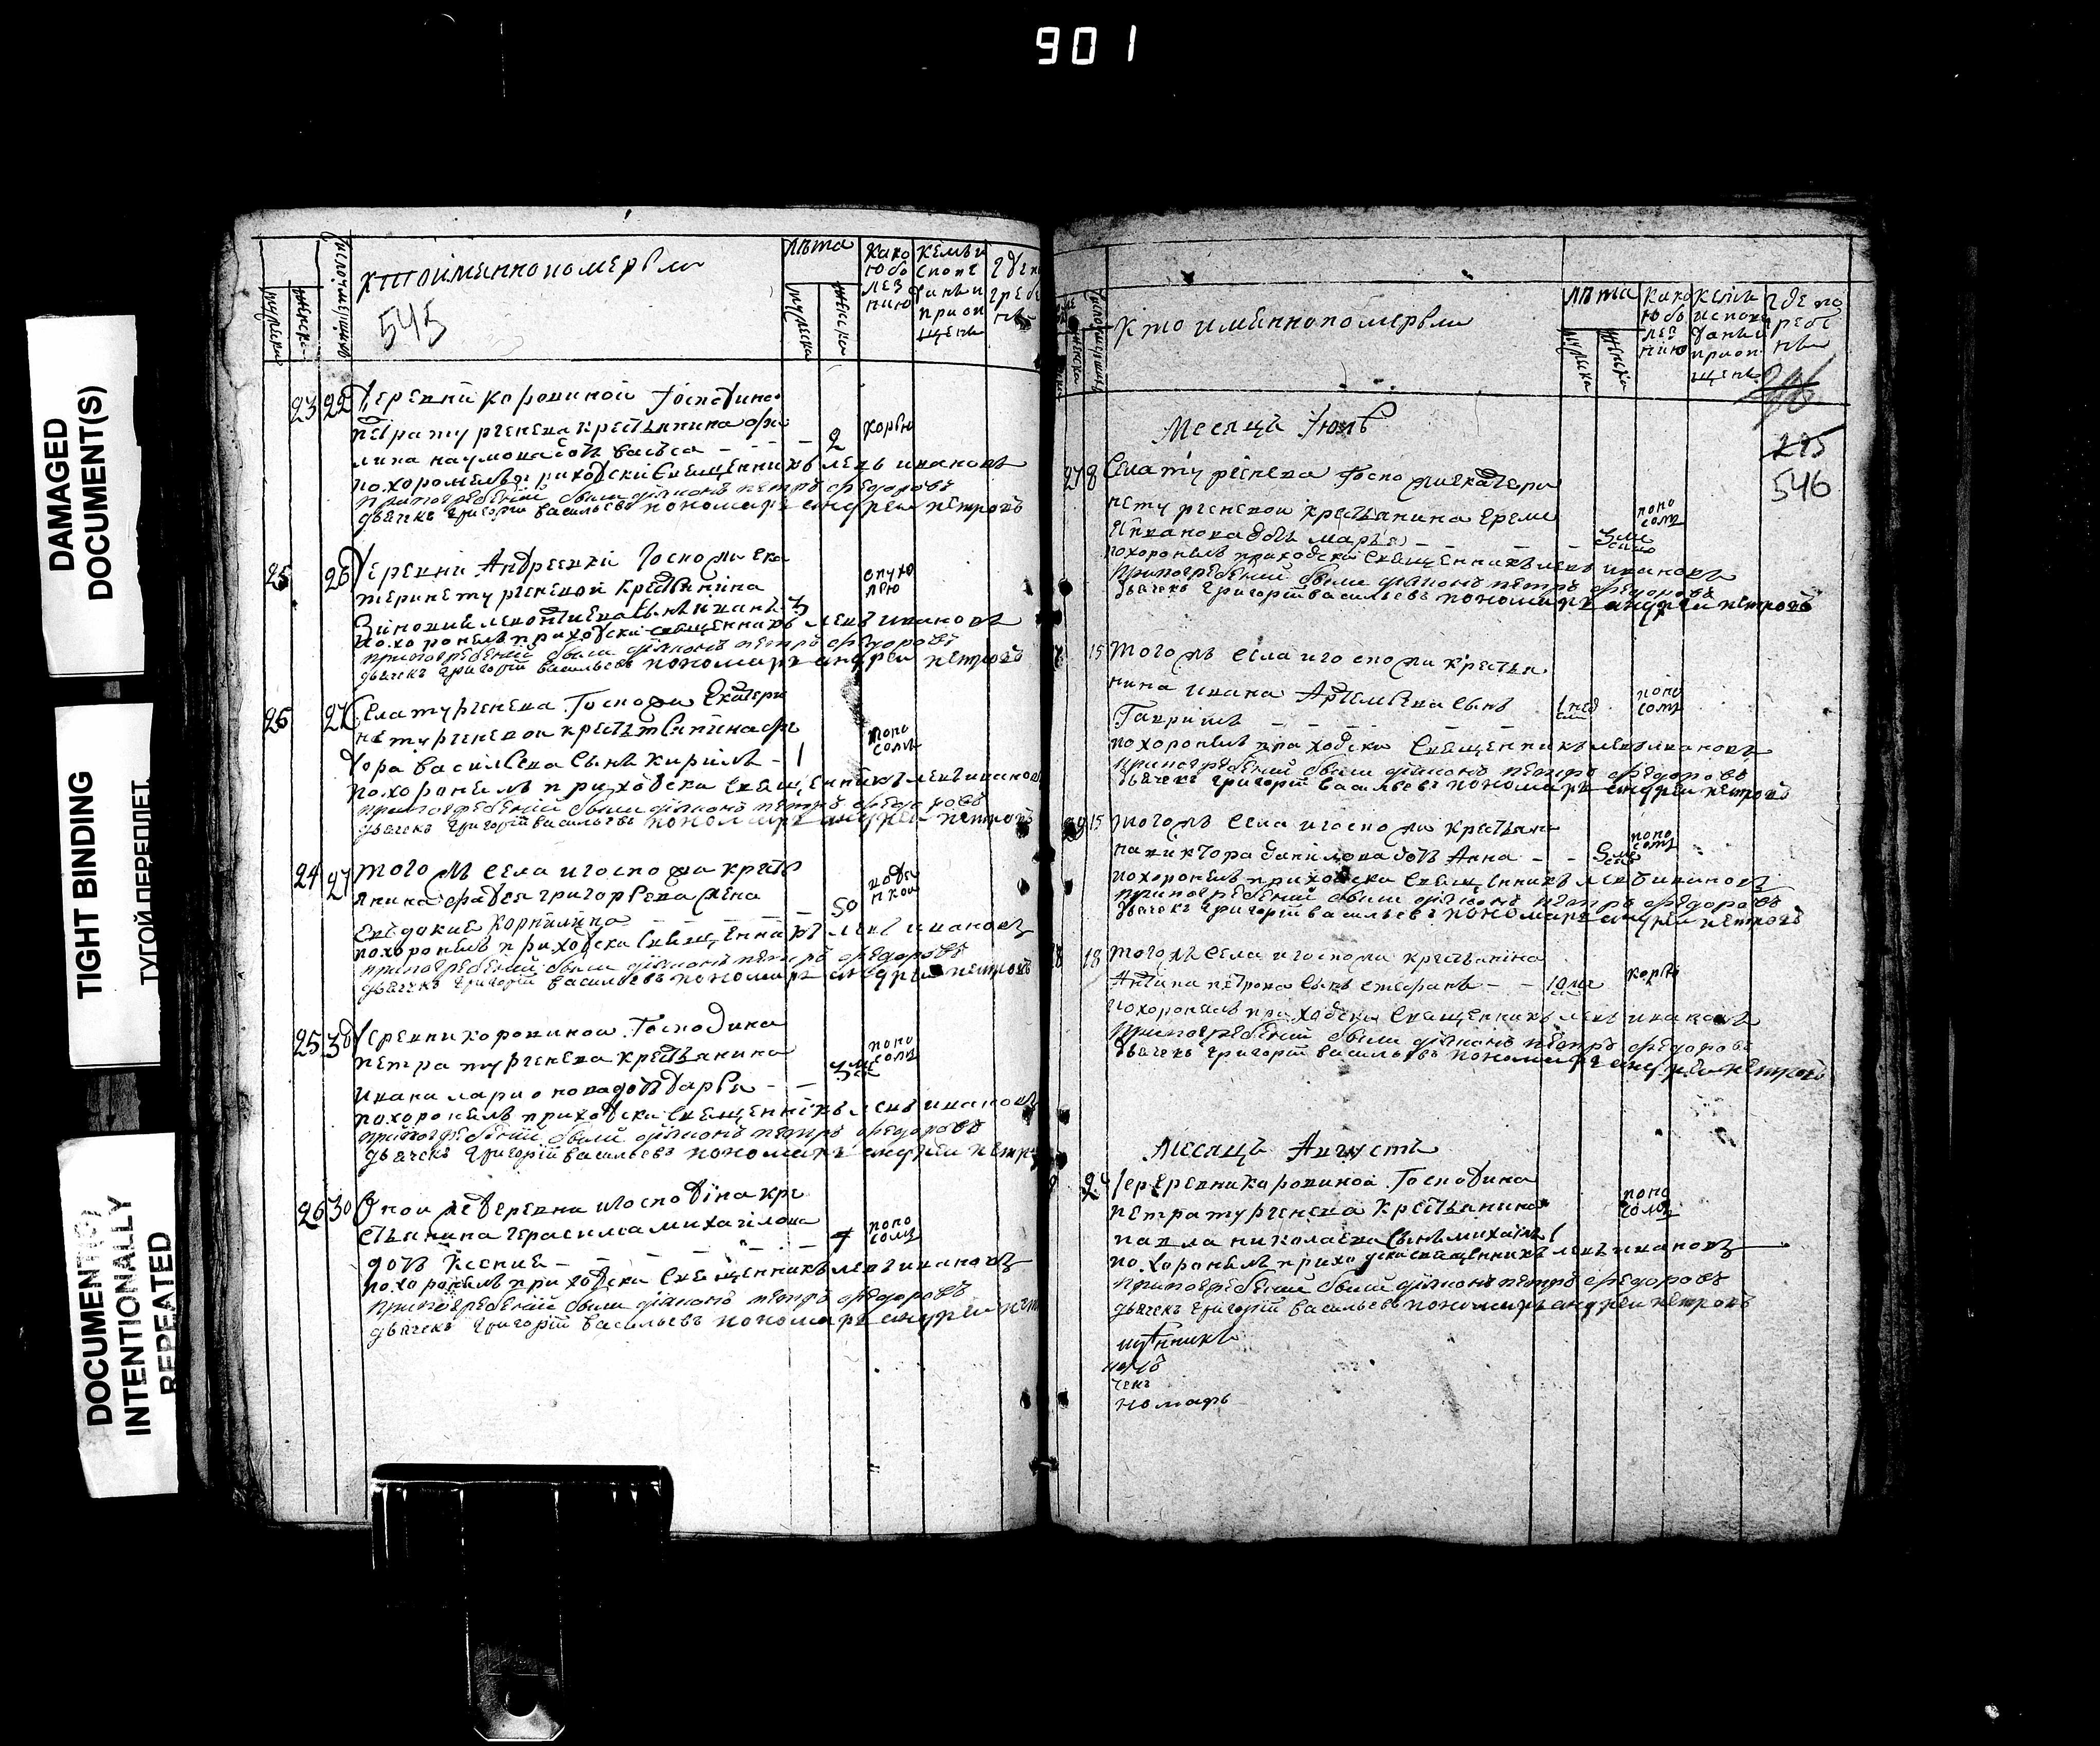 901
DAMAGED
DOCUMENT(S)
TIGHT BINDING
ТУГОЙ ПЕРЕПЛЕТ.
DOCUMENT(S)
INTENTIONALLY
REPEATED
Число умершихъ
мужеска
женска
кто именно померли
545
лѣта
мужеска
женска
како
ю бо
лез
нию
кемъ и
спове
даны и
приоб
щены
где по
гребе
ны
23 22 Деревни коровиной Господина
петра тургенева крестьянина фи
липа наумова дочь васьса 2 корью
похоронилъ приходски священникъ левъ ивановъ
при погребении были дiяконъ петръ федоровъ
дьячекъ григорiй васильевъ пономарь андреи петровъ
25 26 Деревни Андреевки Госпожи Ека
терины тургеневой крестьянина
опухо
лью
Зиновия леонтиева сынъ иванъ 3
похоронилъ приходски священникъ левъ ивановъ
при погребении были дiяконъ петръ федоровъ
дьячекъ григорiй васильевъ пономарь андреи петровъ
26 27 Села тургенева Госпожи Екатери
ны тургеневои крестьянина фе
поно
сомъ
дора васильева сынъ кирилъ 1
похоронилъ приходски священникъ левъ ивановъ
при погребении были дiяконъ петръ федоровъ
дьячекъ григорiй васильевъ пономарь андреи петровъ
24 27 того жъ села и госпожи кресть
янина фадея григорьева жена 50
Евдокия Корнилина
похоронилъ приходски священникъ левъ ивановъ
при погребении были дiяконъ петръ федоровъ
дьячекъ григорiй васильевъ пономарь андреи петровъ
25 30 Деревни коровинои Господина
петра тургенева крестьянина 3 ме
поно
сомъ
ивана ларионова дочь дарья
похоронилъ приходски священникъ левъ ивановъ
при погребении были дiяконъ петръ федоровъ
дьячекъ григорiй васильевъ пономарь андреи петр
26 30 Оной же деревни и господина кре
стьянина герасима михаилова
поно
сомъ
дочь Ксения
похоронилъ приходски священникъ левъ ивановъ
при погребении были дiяконъ петръ федоровъ
дьячекъ григорiй васильевъ пономарь андреи пет
женска
Кто именно померли
лѣта
мужеска
женска
како
ю бо
лез
нию
кемъ
испове
даны и
приоб
щены
где по
гребе
ны
295
546
Месяцъ Июль
27 8 Села тургенева Госпожи екатери
ны тургеневои крестьянина ереме
поно
сомъ
я иванова дочь марья 3 ме
похоронилъ приходски священникъ левъ ивановъ
при погребении были дiяконъ петръ федоровъ
дьячекъ григорiй васильевъ пономарь андреи петровъ
15 того жъ села и госпожи крестья
нина ивана Артемьева сынъ 1 нед
поно
сомъ
Гаврилъ
похоронилъ приходски священникъ левъ ивановъ
при погребении были дiяконъ петръ федоровъ
дьячекъ григорiй васильевъ пономарь андреи петровъ
15 того жъ села и госпожи крестьяни
на виктора данилова дочь Анна
поно
сомъ
похоронилъ приходски священникъ левъ ивановъ
при погребении были дiяконъ петръ федоровъ
дьячекъ григорiй васильевъ пономарь андреи петровъ
18 того жъ села и госпожи крестьянина
Антипа петрова сынъ стефанъ 10 ме корью
похоронилъ приходски священникъ левъ ивановъ
при погребении были дiяконъ петръ федоровъ
дьячекъ григорiй васильевъ пономарь андреи петровъ
Месяцъ Августъ
24 Деревни коровинои Господина
петра тургенева крестьянина
поно
сомъ
павла николаева сынъ михаилъ 1
похоронилъ приходски священникъ левъ ивановъ
при погребении были дiяконъ петръ федоровъ
дьячекъ григорiй васильевъ пономарь андреи петровъ
щенникъ
чекъ
номарь